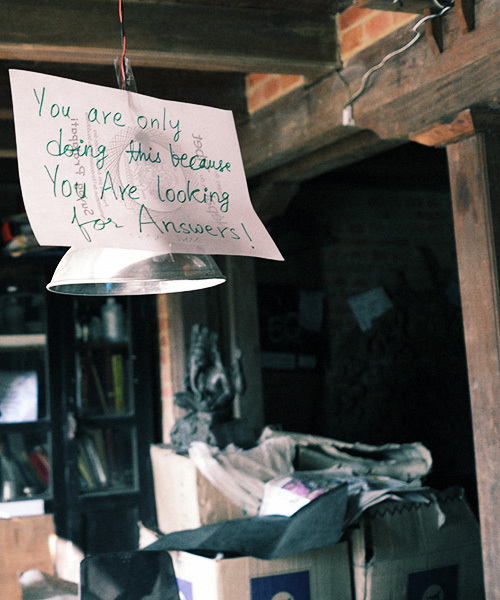 You are only
doing this because
You Are looking
for Answers!